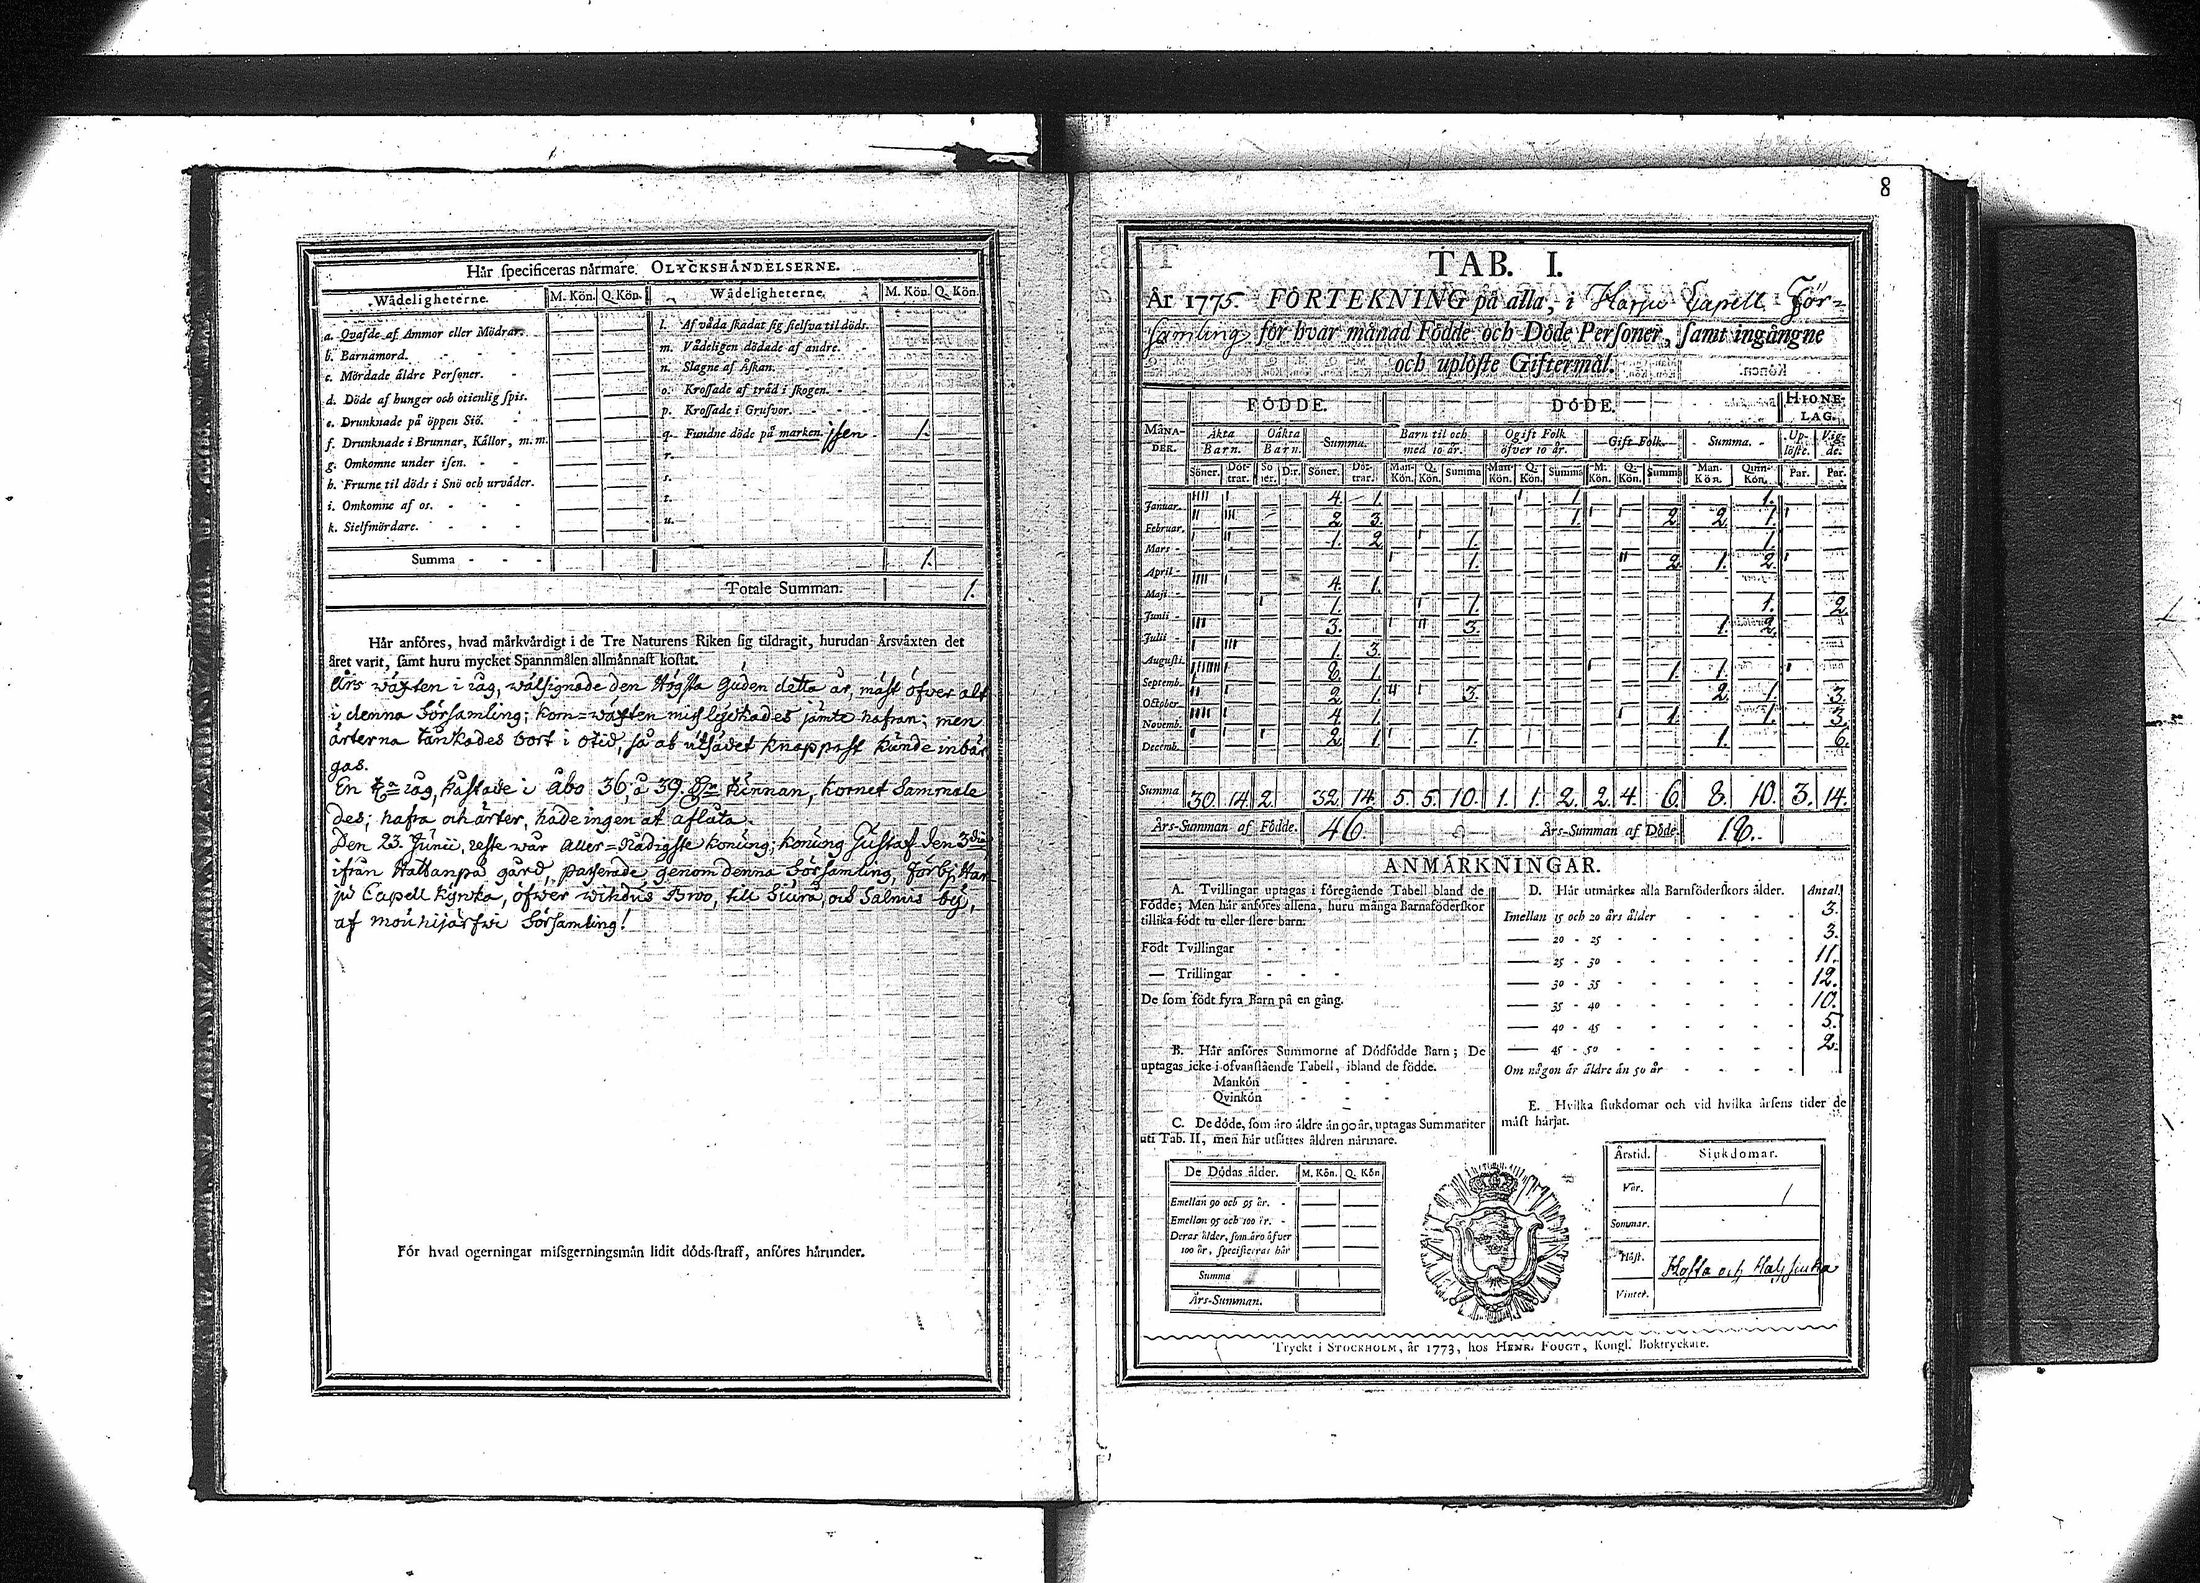 Hår specificeras nårmare. OLYCKSHÅNDELSERNE.
Wådeligheterne. M. Kön. Q. Kön. Wådeligheterne. M. Kön. Q. Kön.
a. Qvafde af Ammor eller Mödrar.
b. Barnamord.
c. Mördade åldre Personer.
d. Döde af hunger och otienlig spis.
e. Drunknade på öppen Siö.
f. Drunknade i Brunnar, Kållor, m. m.
g. Omkomne under isen.
h. Frusne til döds i Snö och urvåder.
i. Omkomne af os.
k. Sielfmördare.
l. Af våda skadat sig sielfva til döds.
m. Vådeligen dödade af andre.
n. Slagne af Åskan.
o. Krossade af tråd i skogen.
p. Krossade i Grufvor.
q. Fundne döde på marken. jsen 1.
r.
s.
t.
u.
Summa 1.
Totale Summan. 1.
Hår anföres, hvad mårkvårdigt i de Tre Naturens Riken sig tildragit, hurudan Årsvåxten det
året varit, samt huru mycket Spannmålen allmånnast kostat.
Års wäxten i råg, wälsignade den Högsta Guden detta år, mäst öfver alt
i denna Församling; korn=wäxten misslyckades jämte hafran; men
ärterna tänkades bort i otid, så at utsädet knappast kunde inbär
gas.
En t:na råg, kåstade i Åbo 36, à 39 kinnan, kornet Sammale
des; hafra och ärter, hade ingen at aflåta.
Den 23. Junii, reste wår Aller=Nådigste konung, konung Gustaf den 3die
ifrån Hattanpä gård, passerade genom denna Församling, förbj Har
ju Capell kyrcka, öfwer wikdus Broo, till Siurå, och Salmis by,
af Mouhijärfwi Församling!
För hvad ogerningar missgerningsmån lidit döds-straff, anföres hårunder.
8
TAB. I.
År 1775. FÖRTEKNING på alla, i Harju Capell För=
samling för hvar månad Födde och Döde Personer, samt ingångne
och uplöste Giftermål.
MÅNA-DER. FÖDDE. DÖDE. HIONE-LAG.
Åkta Barn. Oåkta Barn. Summa. Barn til och med 10 år. Ogift Folk öfver 10 år. Gift Folk. Summa. Up-löste. Vig-de.
Söner. Döt-trar. Sö ner. D:r. Söner. Döt-trar. Man-Kön. Q. Kön. Summa Man-Kön. Q. Kön. Summa M. Kön. Q. Kön. Summa Man-Kön. Qvin-Kön. Par. Par.
Januar. 4. 1. 1. 1.
Februar. 2. 3. 1. 2. 2. 1.
Mars 1. 2. 1. 1.
April 1. 2. 1. 2.
Maji 4. 1.
Junii 1. 1. 1. 2.
Julii 3. 3. 1. 2.
Augusti. 1. 3.
Septemb. 8. 1. 1. 1.
October 2. 1. 3. 2. 1. 3.
Novemb. 4. 1. 1. 1. 3.
Decemb. 2. 1. 1. 1. 6.
Summa 30. 14. 2. 32. 14. 5. 5. 10. 1. 1. 2. 2. 4. 6. 8. 10. 3. 14.
Års-Summan af Födde. 46 Års-Summan af Döde. 18.
ANMÅRKNINGAR.
A. Tvillingar uptagas i föregående Tabell bland de
Födde; Men hår anföres allena, huru många Barnaföderskor
tillika födt tu eller flere barn.
Födt Tvillingar
— Trillingar
De som födt fyra Barn på en gång.
B. Hår anföres Summorne af Dödfödde Barn; De
uptagas icke i ofvanstående Tabell, ibland de födde.
Mankön
Qvinkön
C. De döde, som åro åldre ån 90 år, uptagas Summariter
uti Tab. II, men hår utsåttes åldren nårmare.
De Dödas ålder. M. Kön. Q. Kön
Emellan 90 och 95 år.
Emellan 95 och 100 år.
Deras ålder, som åro öfver
100 år, specificeras hår
Summa
Års-Summan.
D. Hår utmårkes alla Barnföderskors ålder. Antal.
Imellan 15 och 20 års ålder 3.
— 20 - 25 3.
— 25 - 30 11.
— 30 - 35 12.
— 35 - 40 10.
— 40 - 45 5.
— 45 - 50 2.
Om någon år åldre ån 50 år
E. Hvilka siukdomar och vid hvilka årsens tider de
måst hårjat.
Årstid. Siukdomar.
Vår.
Sommar.
Höst. Hosta och Halssiuka
Vinter.
Tryckt i STOCKHOLM, år 1773, hos HENR. FOUGT, Kongl. Boktryckare.